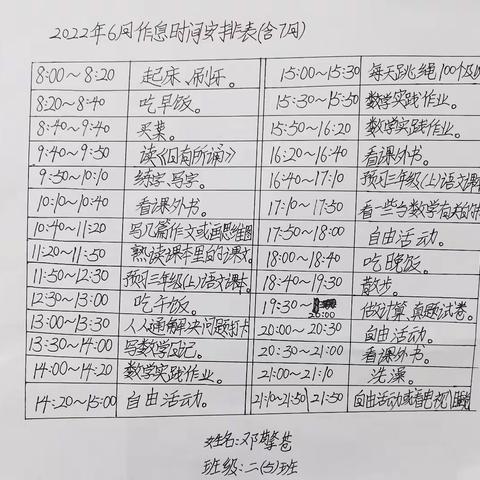 2022年6月作息时间安排表(含7月)
8:00～8:20 起床、刷牙。 15:00～15:30 每天跳绳100个及以
8:20～8:40 吃早饭。 15:30～15:50 数学实践作业。
8:40～9:40 买菜。 15:50～16:20 数学实践作业。
9:40～9:50 读《日有所诵》 16:20～16:40 看课外书。
9:50～10:10 练字、写字。 16:40～17:10 预习三年级(上)语文课本
10:10～10:40 看课外书。 17:10～17:50 看一些与数学有关的书
10:40～11:20 写几篇作文或画思维图 17:50～18:00 自由活动。
11:20～11:50 熟读课本里的课文。 18:00～18:40 吃晚饭。
11:50～12:30 预习三年级(上)语文课本。 18:40～19:30 散步。
12:30～13:00 吃午饭。 19:30～20:00 做计算、真题试卷。
13:00～13:30 人人通解决问题打卡 20:00～20:30 自由活动。
13:30～14:00 写数学日记。 20:30～21:00 看课外书。
14:00～14:20 数学实践作业。 21:00～21:10 洗澡。
14:20～15:00 自由活动。 21:10～21:50 21:50 自由活动或看电视
姓名:邓擎苍
班级:二(5)班